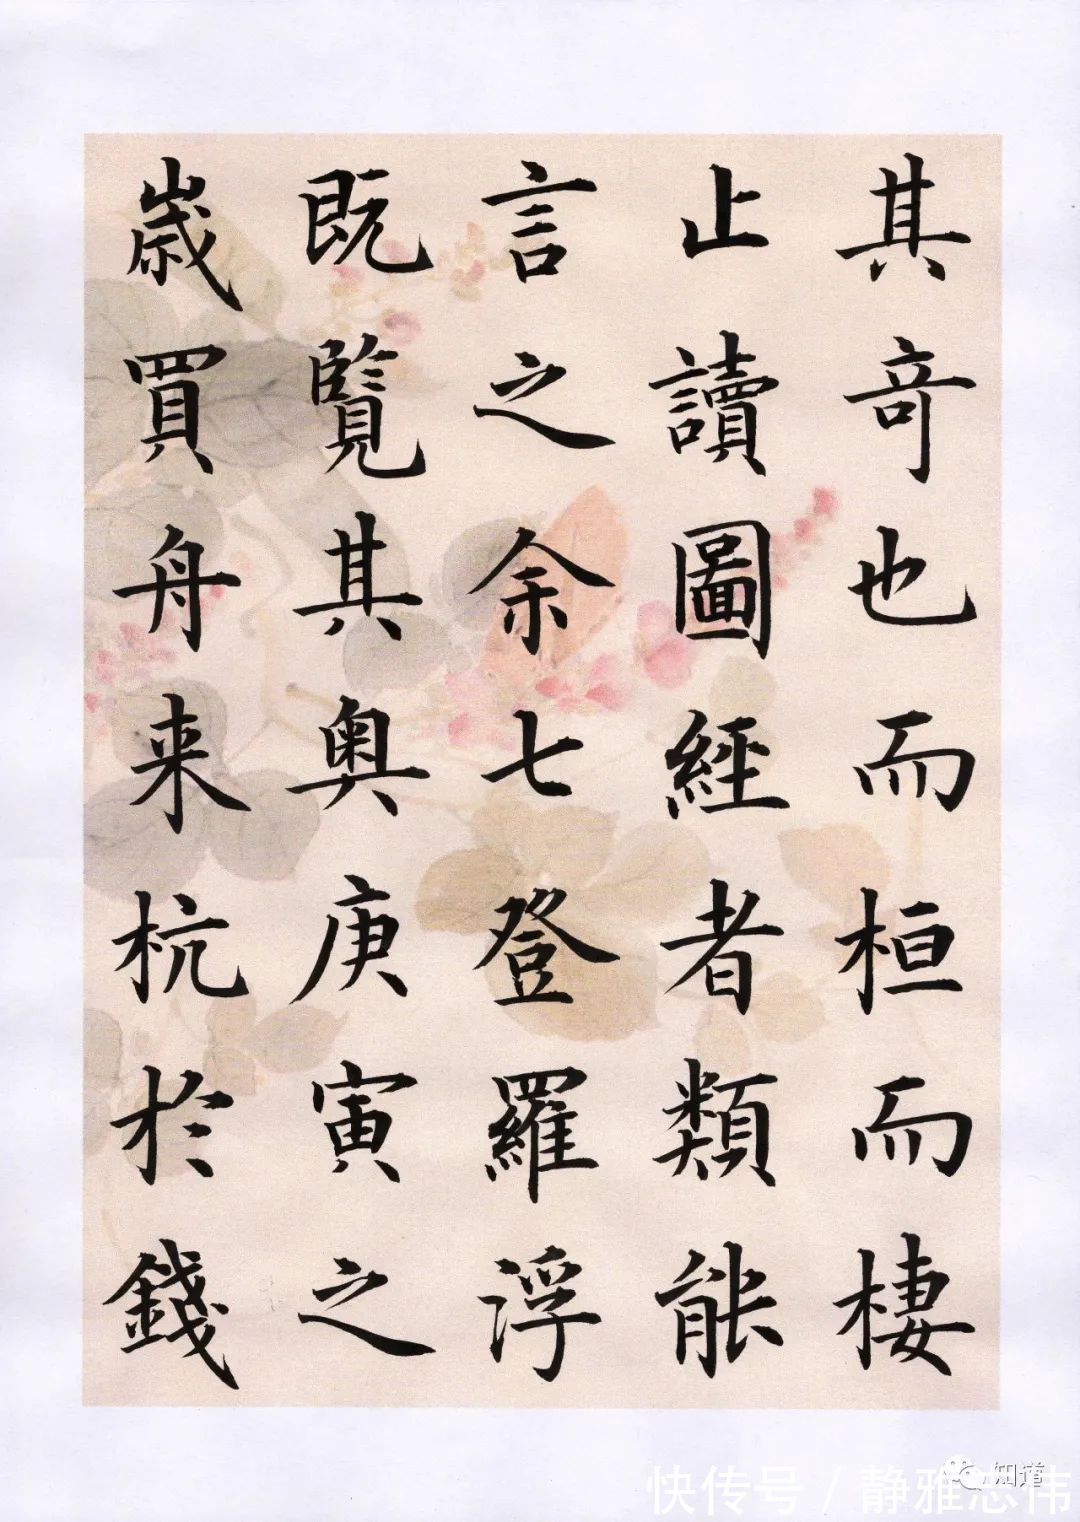 其竒也而桓而棲
止讀圖經者類能
言之余七登羅浮
既覽其奥庚寅之
歳買舟来杭於錢
知道
快传号 / 静雅志伟